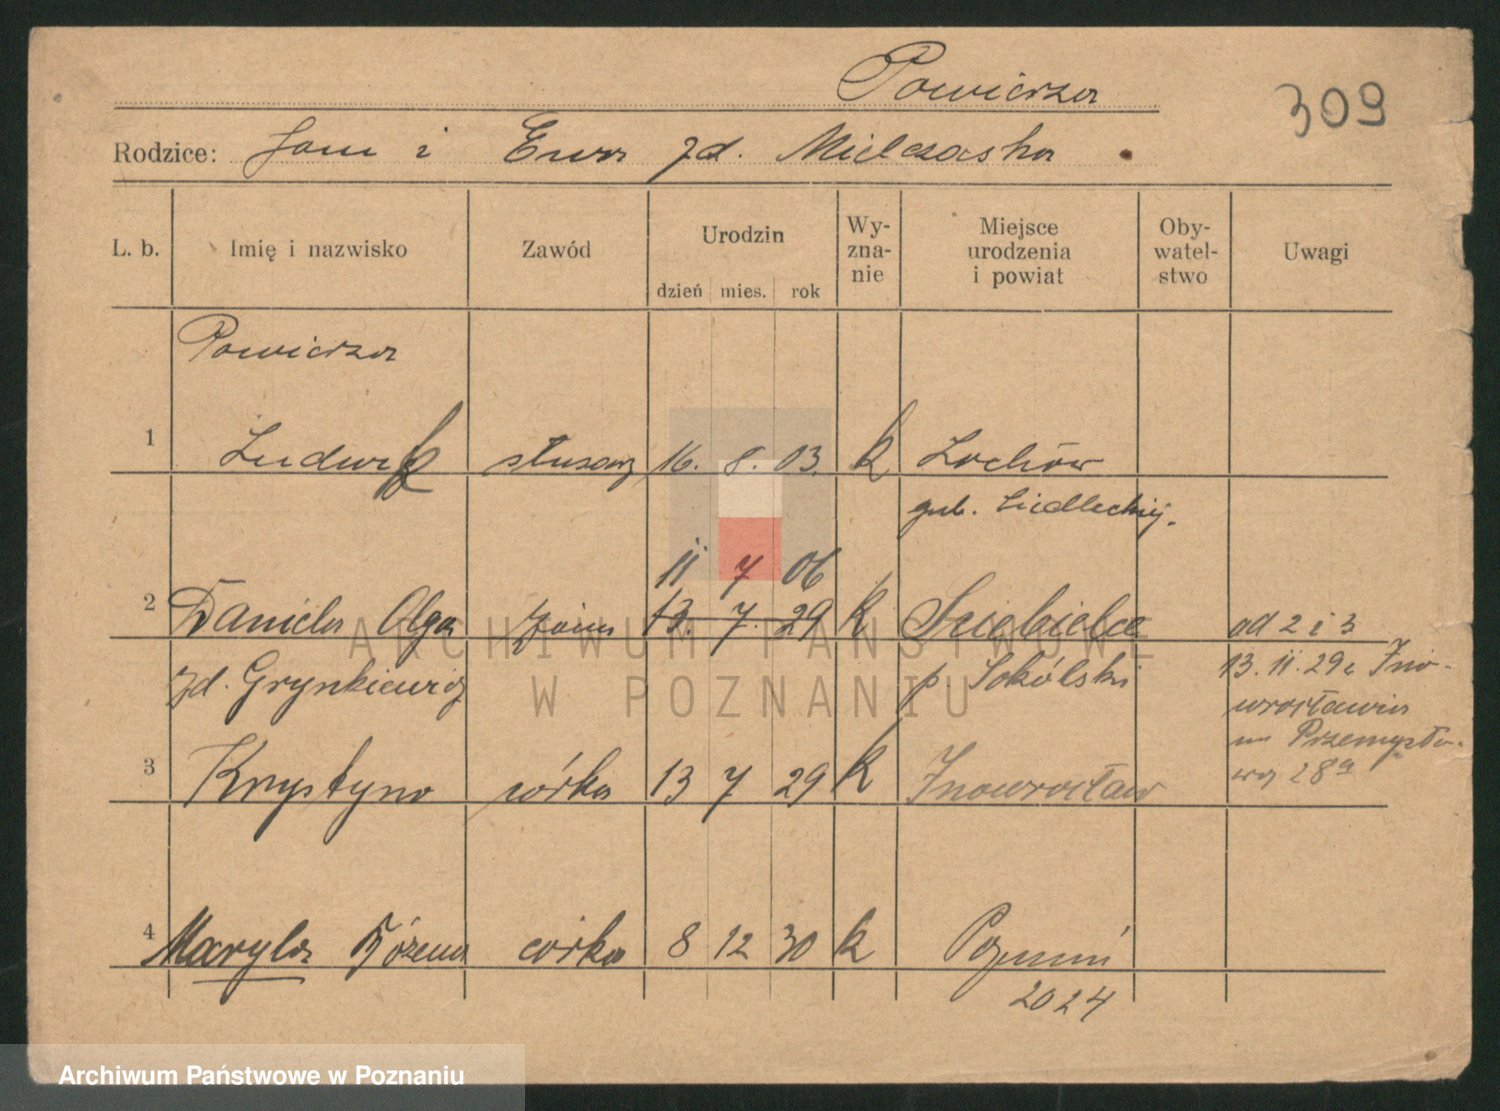 Powierza
309
Rodzice: Jan i Ewa zd. Mielczaska
L. b. Imię i nazwisko Zawód Urodzin dzień mies. rok Wy-zna-nie Miejsce urodzenia i powiat Oby-watel-stwo Uwagi
Powierza
1 Ludwik ślusarz 16. 8. 03. k Łochów
gub. Siedleckiej.
11 7 06
2 Daniela Olga żona 13. 7. 29 k od 2 i 3
zd. Grynkiewicz p. Sokólski 13. 11. 29 z Ino-
wrocławia
Przemysło-
wej 28a
3 Krystyna córka 13 7 29 k Inowrocław
4 Maryla Bożena córka 8 12 30 k Poznań
2024
ARCHIWUM PAŃSTWOWE
W POZNANIU
Archiwum Państwowe w Poznaniu